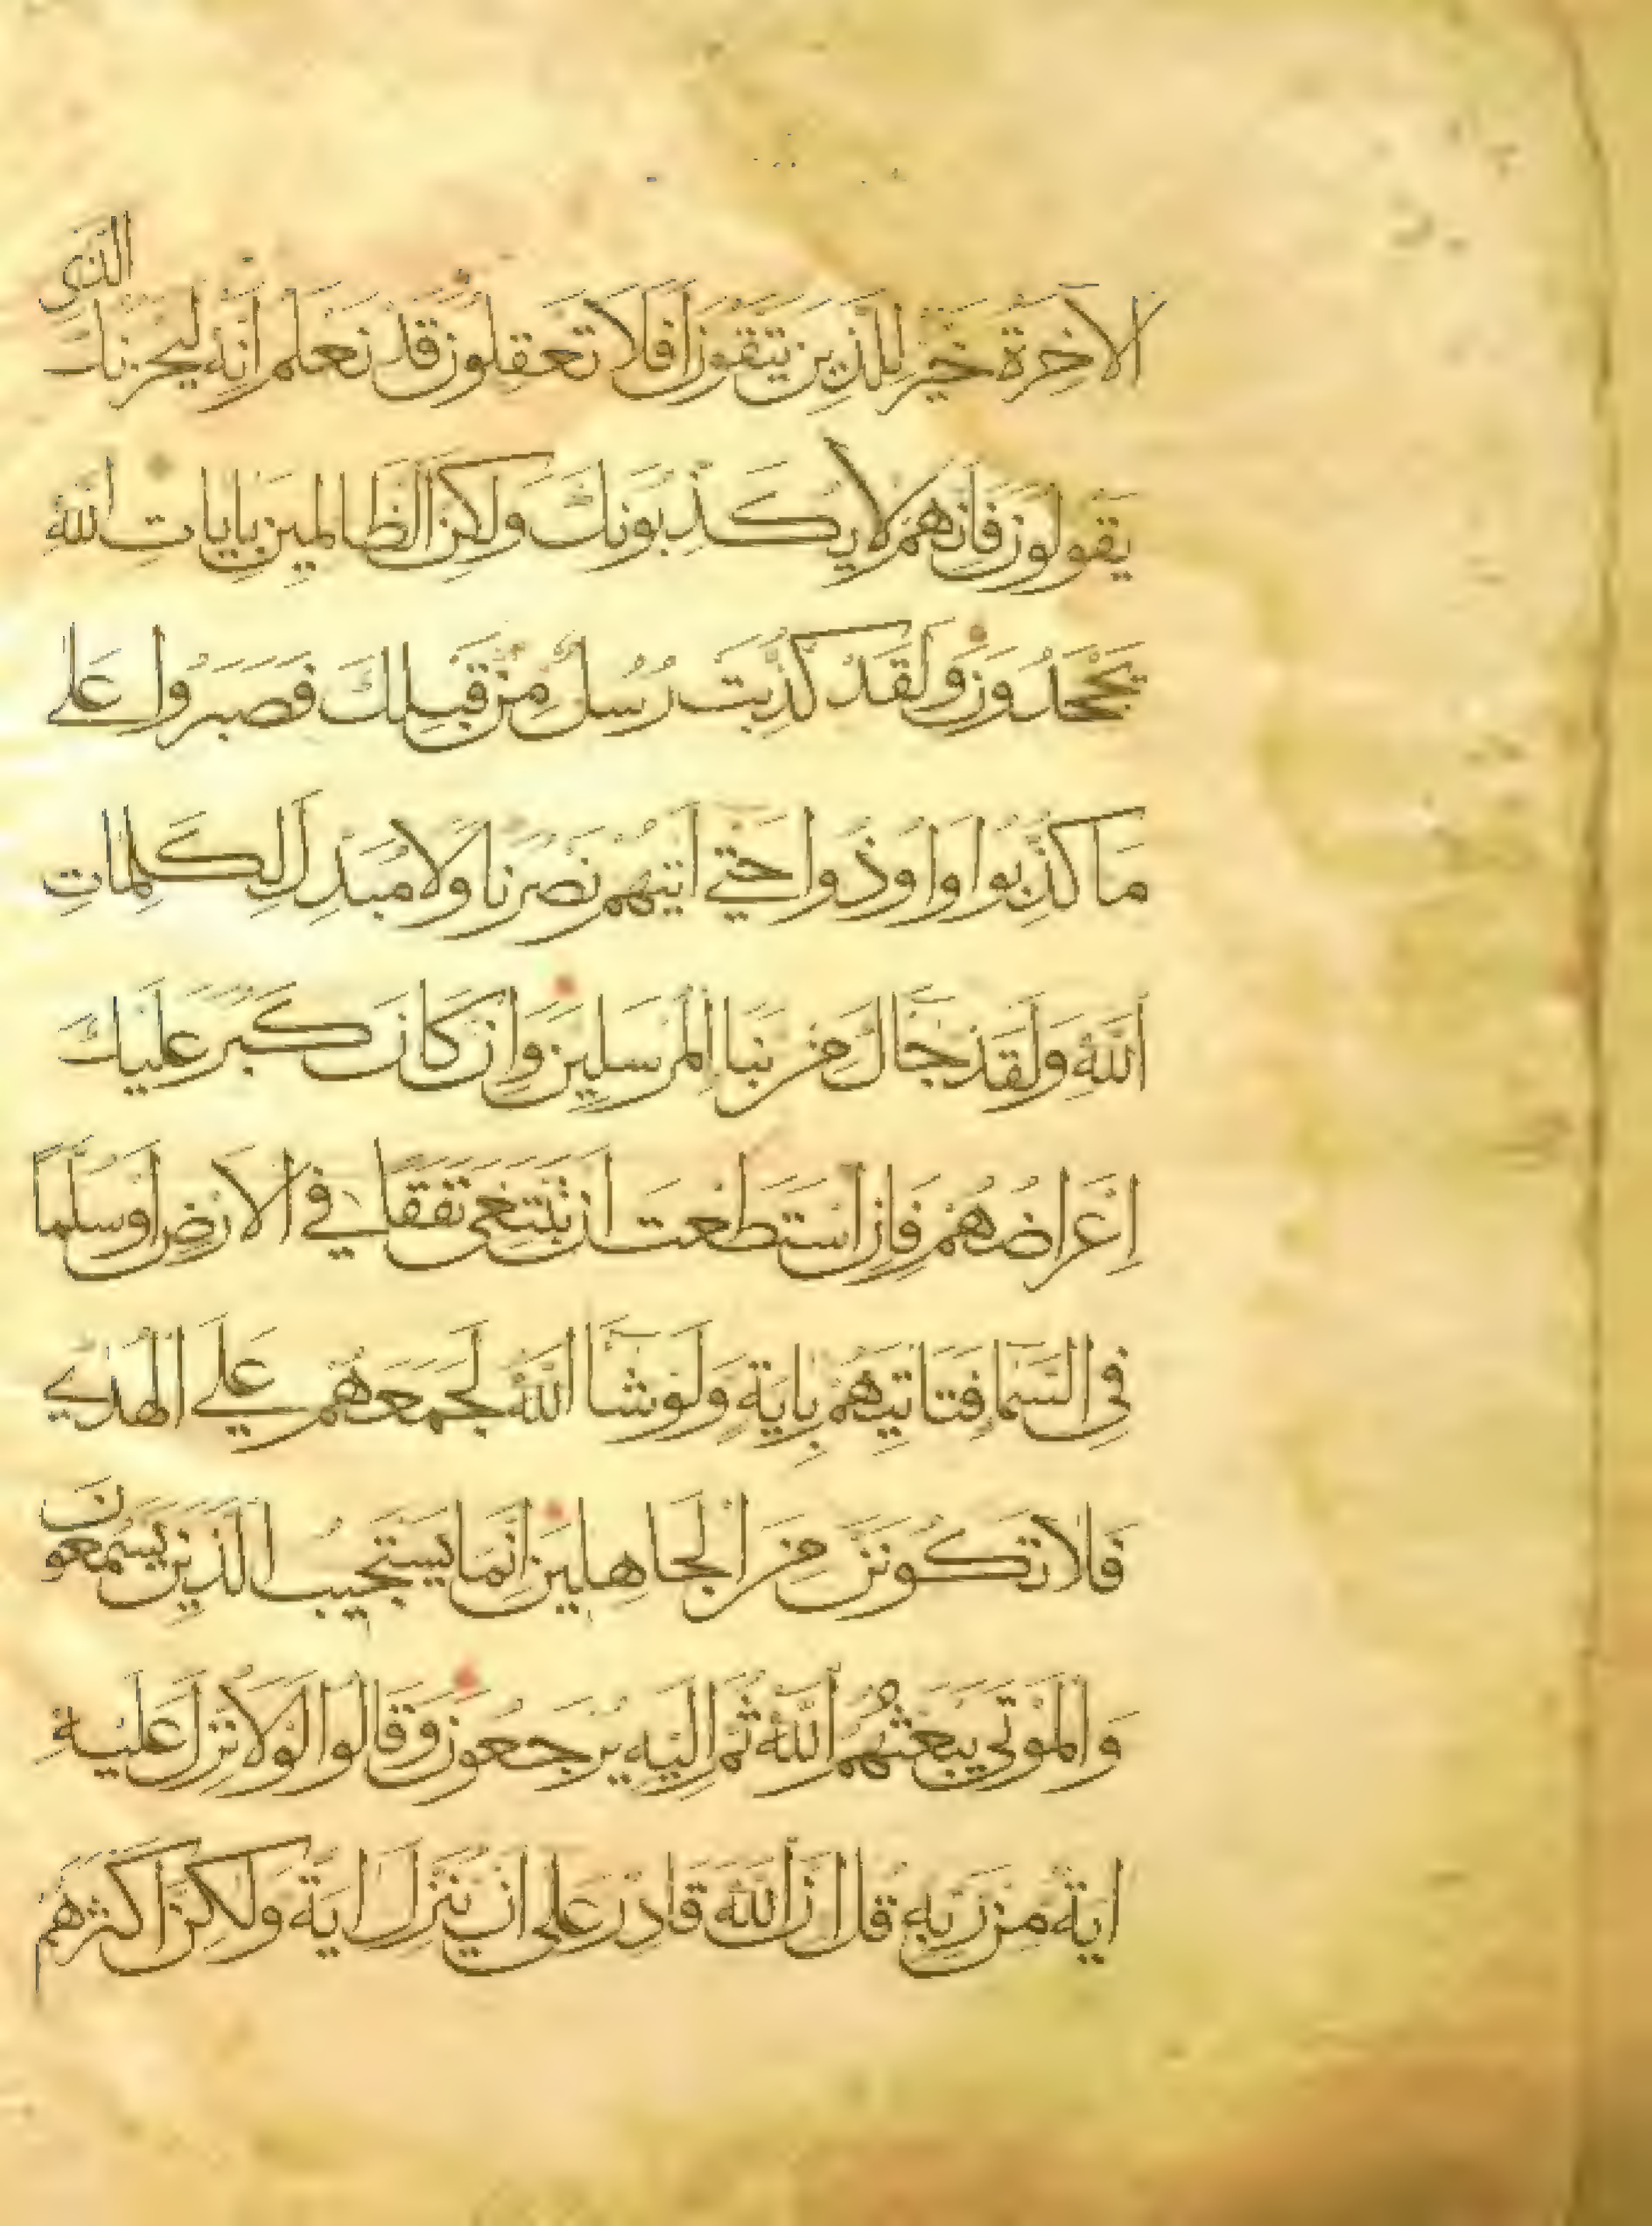 الاخرة خير للذين يتقون افلا تعقلون قد نعلم انه ليحزنك الذي
يقولون فانهم لا يكذبونك ولكن الظالمين بايات الله
يجحدون ولقد كذبت رسل من قبلك فصبروا على
ما كذبوا واوذوا حتى اتيهم نصرنا ولا مبدل لكلمات
الله ولقد جاك من نبا المرسلين وان كان كبر عليك
اعراضهم فان استطعت ان تبتغي نفقا في الارض او سلما
في السما فتاتيهم باية ولو شا الله لجمعهم على الهدى
فلا تكونن من الجاهلين انما يستجيب الذين يسمعون
والموتى يبعثهم الله ثم اليه يرجعون وقالوا لولا نزل عليه
اية من ربه قل ان الله قادر على ان ينزل اية ولكن اكثرهم